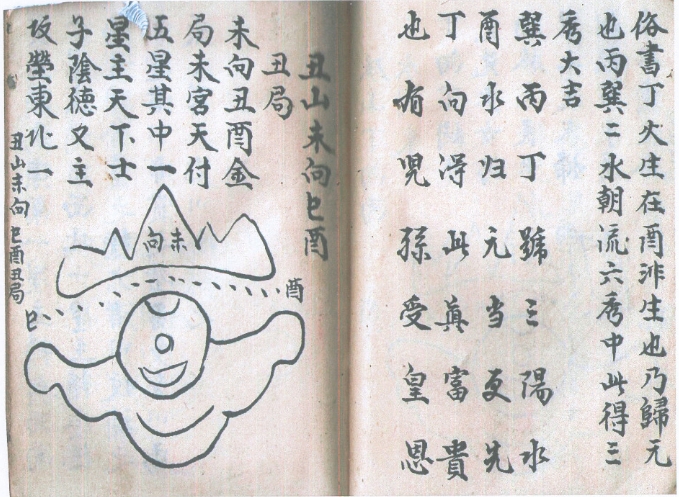 俗書丁火生在酉非生也乃歸元
也丙巽二水朝流六秀中此得三
秀大吉
巽丙丁號三陽水
酉水归元当更先
丁向淂此眞富貴
也有児孫受皇恩
丑山未向巳酉
丑局
未向丑酉金
局未宫天付
五星其中一
星主天下士
子陰德又主
坟塋東北一
丑山未向巳酉丑局
未向
酉
巳